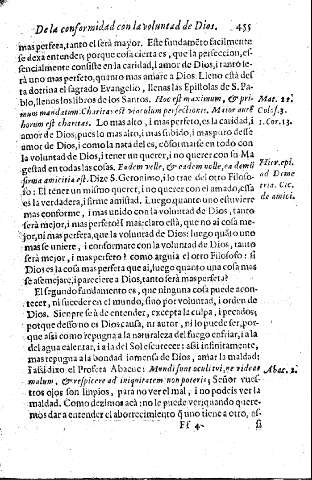 De la conformidad con la voluntad de Dios. 455
mas perfeta, tanto el será mayor. Este fundamẽto facilmente
se dexa entender; porque cosa cierta es, que la perfeccion, es-
sencialmente consiste en la caridad, i amor de Dios, i tanto se-
rà uno mas perfeto, quanto mas amare a Dios. Lleno està des-
ta dotrina el sagrado Evangelio, llenas las Epistolas de S. Pa-
blo, llenos los libros de los Santos. Hoc est maximum, & pri-
mum mandatum. Charitas est vinculum perfectionis. Maior autē
horum est charitas. Lo mas alto, i mas perfeto, es la caridad, i
amor de Dios; pues lo mas alto, i mas subido, i mas puro desse
amor de Dios, i como la nata del es, cõformarse en todo con
la voluntad de Dios, i tener un querer, i no querer con su Ma
gestad en todas las cosas. Eadem velle, & eadem nolle, ea demũ
firma amicitia est. Dize S. Geronimo, i lo trae del otro Filoso-
fo: El tener un mismo querer, i no querer con el amado, essa
es la verdadera, i firme amistad. Luego quanto uno estuviere
mas conforme, i mas unido con la voluntad de Dios, tanto
serà mejor, i mas perfeto: I mas: claro està, que no ai cosa me-
jor, ni mas perfeta, que la voluntad de Dios: luego quãto uno
mas se uniere, i conformare con la voluntad de Dios, tanto
serà mejor, i mas perfeto? como arguia el otro Filosofo: si
Dios es la cosa mas perfeta que ai, luego quanto una cosa mas
se asemejare, i pareciere a Dios, tanto será mas perfeta?
El segundo fundamento es, que ninguna cosa puede acon-
tecer, ni suceder en el mundo, sino por voluntad, i orden de
Dios. Siempre se à de entender, excepto la culpa, i pecados;
porque desso no es Dios causa, ni autor, ni lo puede ser, por-
que assi como repugna a la naturaleza del fuego enfriar, i a la
del agua calentar, i a la del Sol escurecer: assi infinitamente,
mas repugna a la bondad inmensa de Dios, amar la maldad:
i assi dixo el Profeta Abacuc: Mundi sunt oculi tui, ne videas
malum, & respicere ad iniquitatem non poteris; Señor vues-
tros ojos son limpios, para no ver el mal, i no podeis ver la
maldad. Como dezimos acà: no le puede ver; quando quere-
mos dar a entender el aborrecimiento q̃ uno tiene a otro, as-
Ff 4 si
Mat. 22.
Colos. 3.
1. Cor. 13.
Hier. epi.
ad Deme
tria. Cic.
de amici.
Abac. 1.